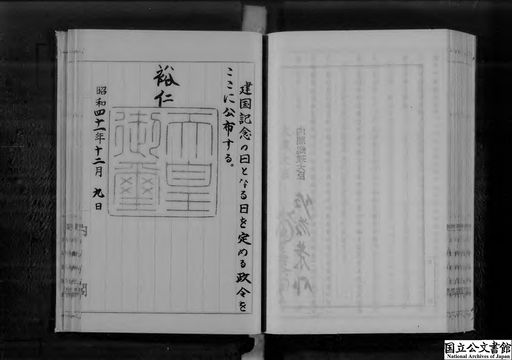 建国記念の日となる日を定める政令を
ここに公布する。
裕仁
天皇
御璽
昭和四十一年十二月九日
内閣
内閣総理大臣
佐藤榮作
国立公文書館
National Archives of Japan